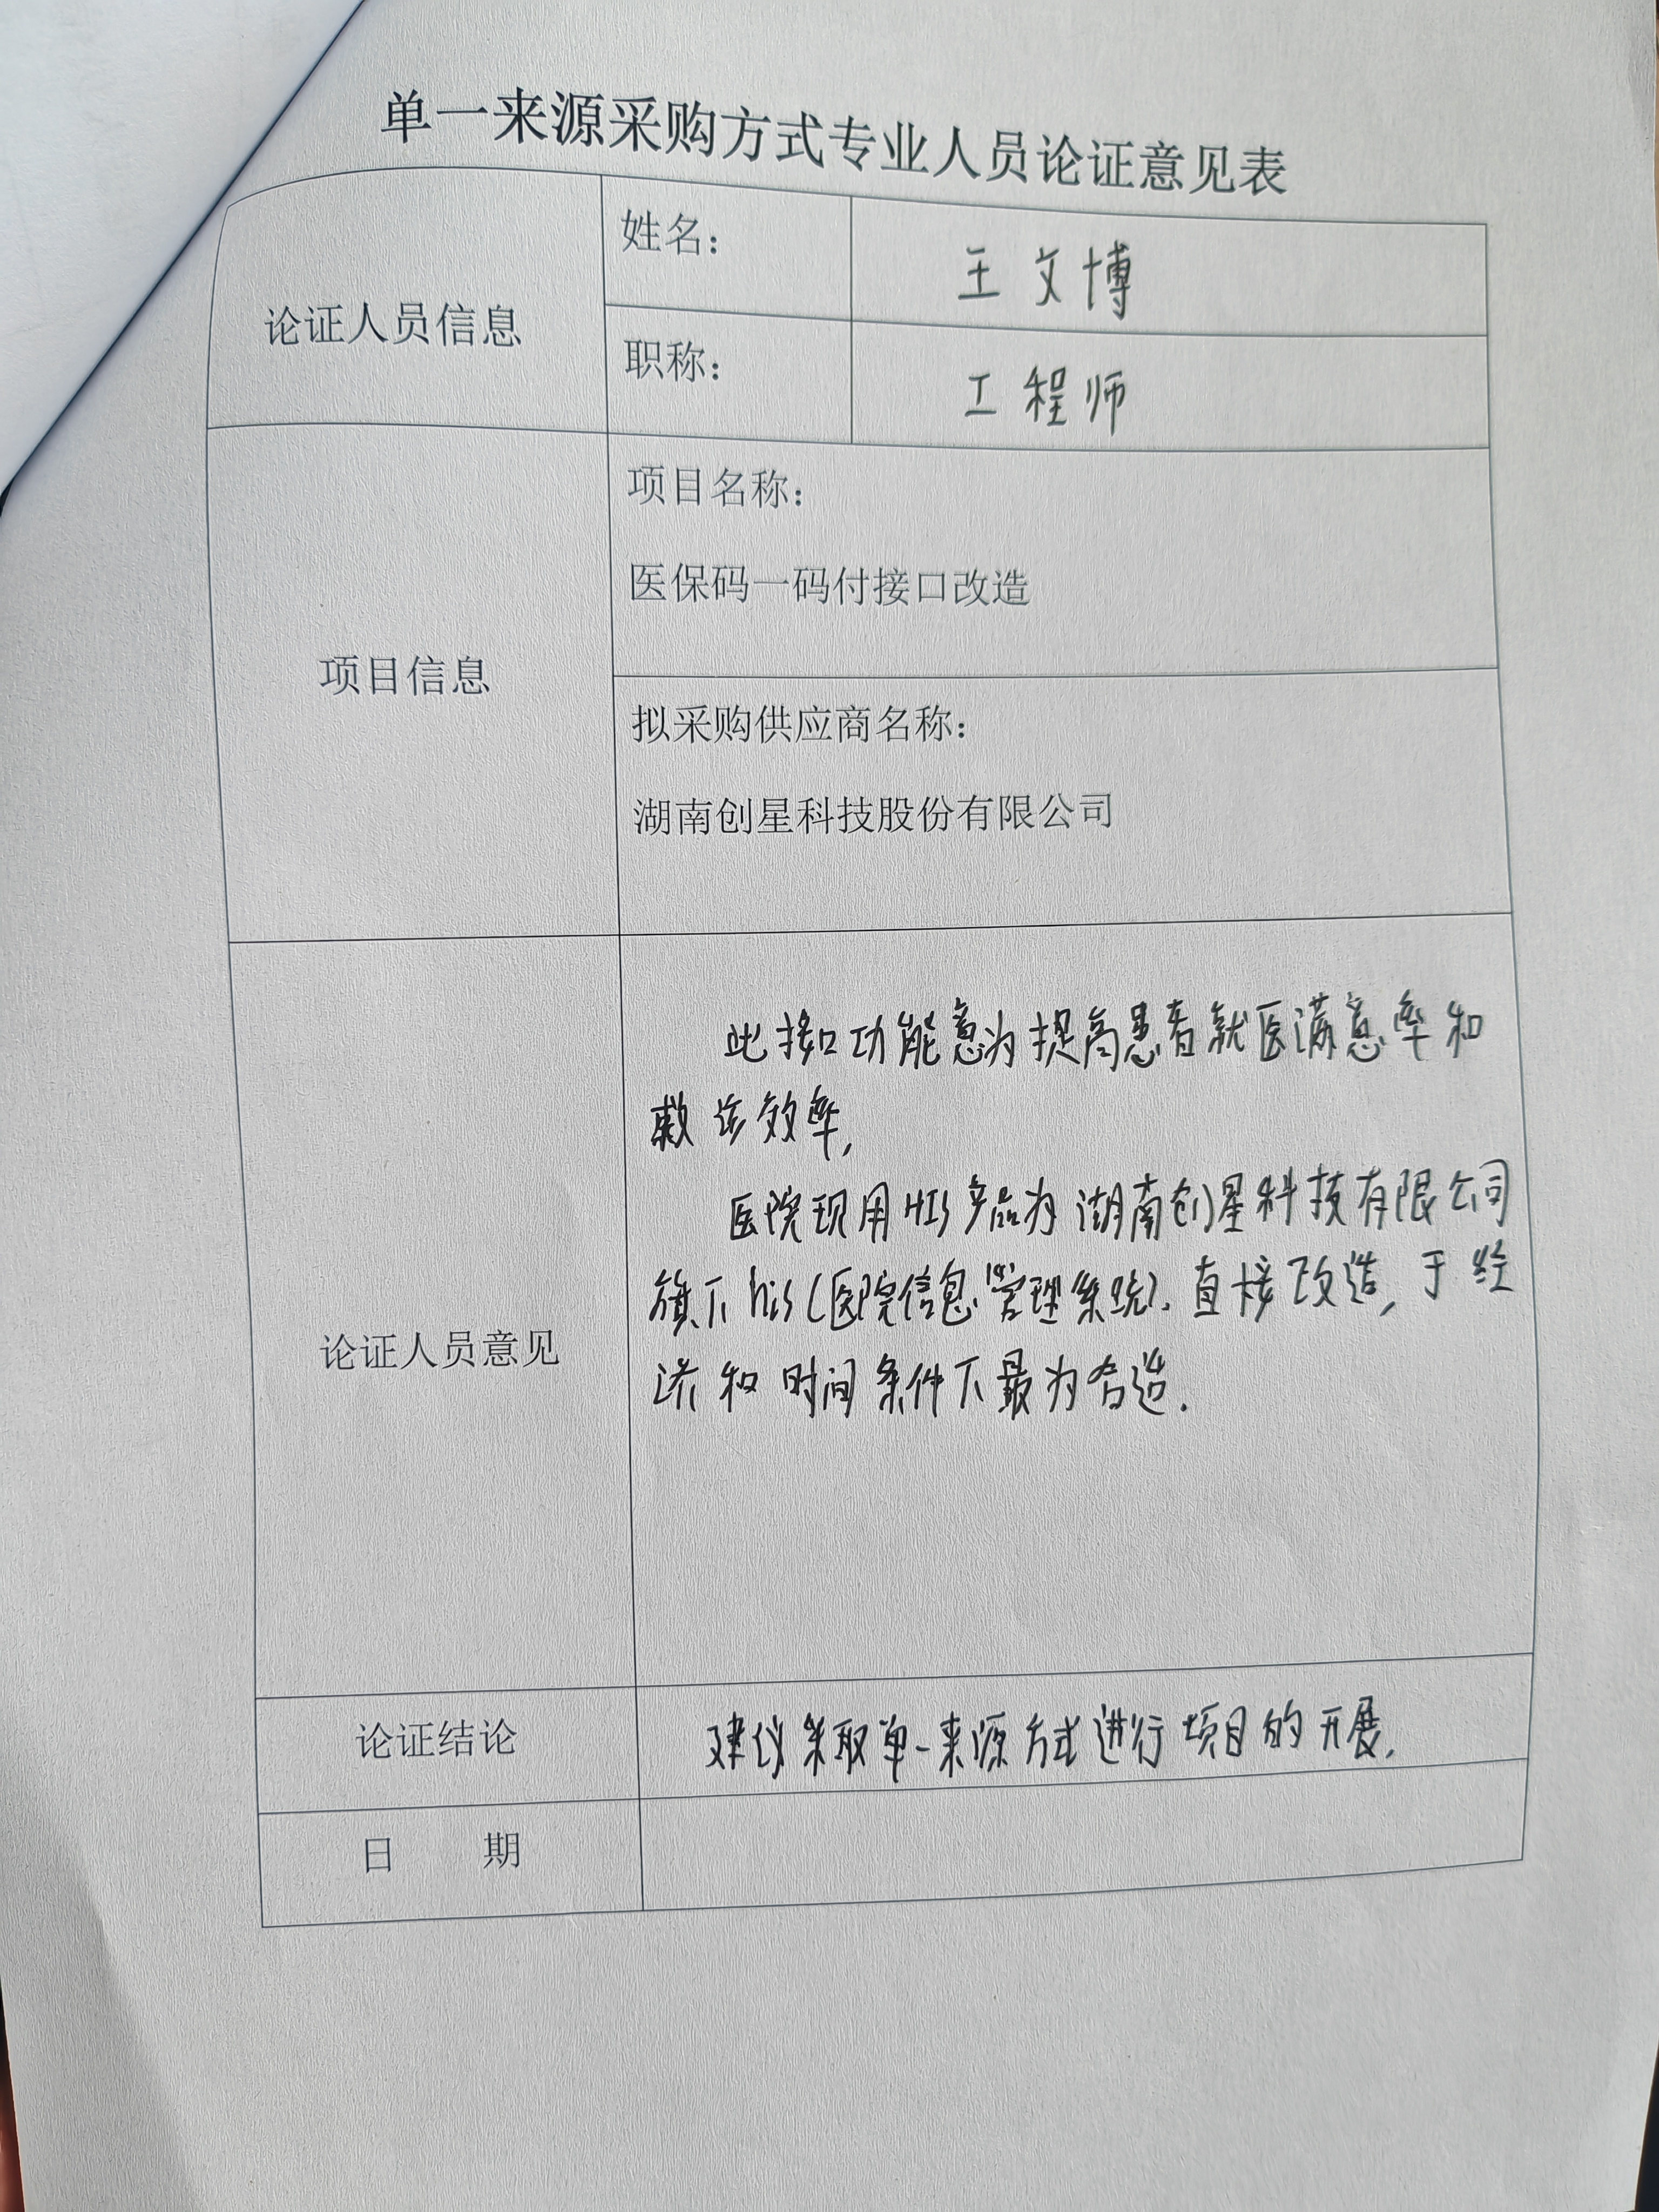 单一来源采购方式专业人员论证意见表
论证人员信息
姓名：
王文博
职称：
工程师
项目信息
项目名称：
医保码一码付接口改造
拟采购供应商名称：
湖南创星科技股份有限公司
论证人员意见
此接口功能意为提高患者就医满意率和
救诊效率，
医院现用HIS产品为湖南创星科技有限公司
旗下his（医院信息管理系统）. 直接改造，于经
济和时间条件下最为合适.
论证结论
建议采取单一来源方式进行项目的开展.
日 期